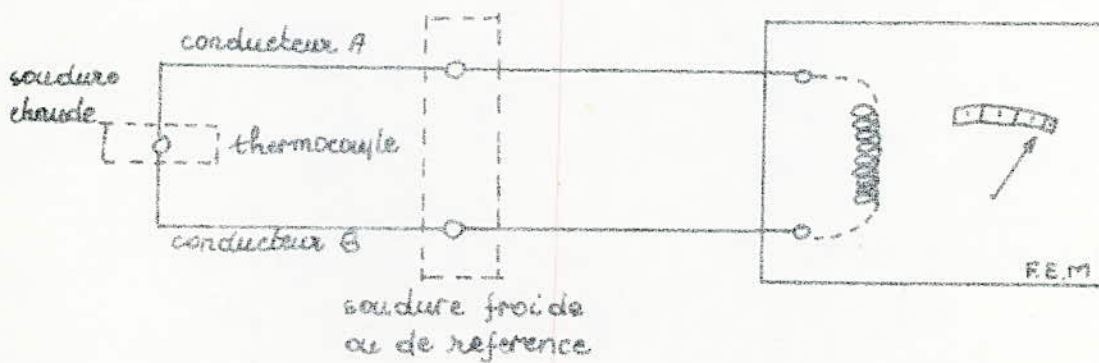 conducteur A
soudure
chaude
thermocouple
conducteur B
soudure froide
ou de reference
F.E.M